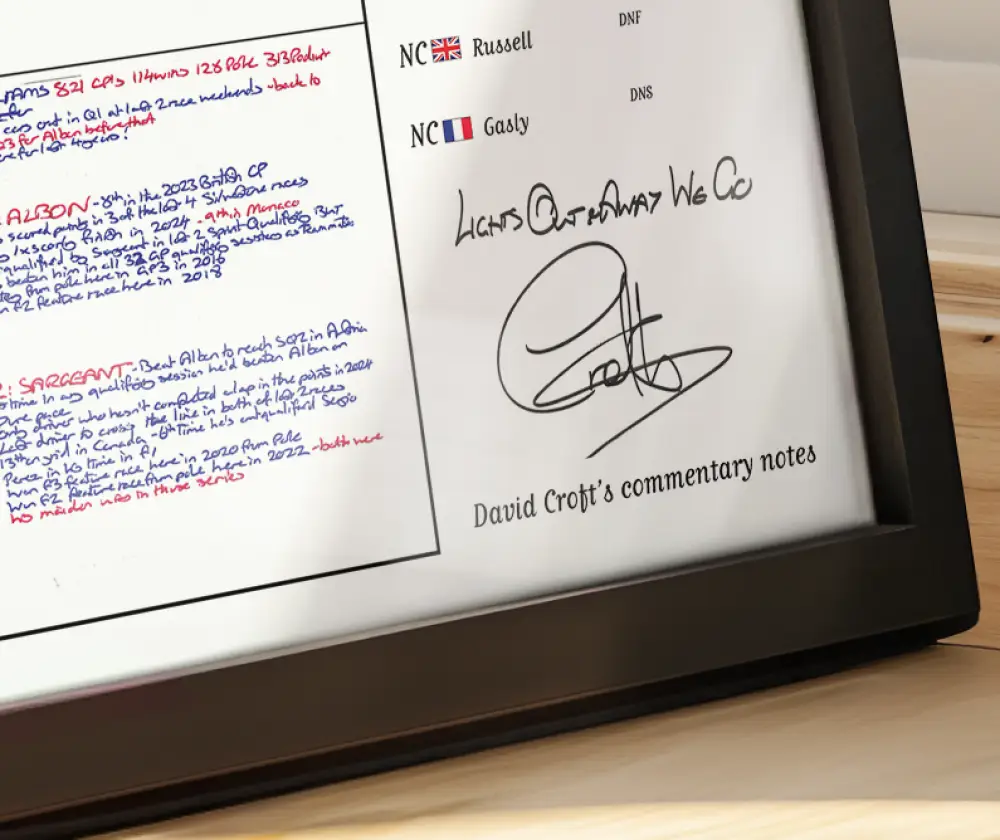 821 GPs 114 wins 128 Pole 313 Podiums
out in Q1 at last 2 race weekends - back to
23 for Albon before that
for last 4 years!
ALBON - 8th in the 2023 British GP
scored points in 3 of the last 4 Silverstone races
finish in 2024 - 9th in Monaco
outqualified by Sargeant in last 2 Sprint Qualifying But
beaten him in all 32 GP qualifying sessions as teammates
from pole here in GP3 in 2016
F2 feature race here in 2018
: SARGEANT - Beat Albon to reach SQ2 in Austria
time in any qualifying session he'd beaten Albon on
Pure pace
only driver who hasn't completed a lap in the points in 2024
Last driver to cross the line in both of last 2 races
13th on grid in Canada - 6th time he's outqualified Sergio
Perez in his time in F1
Won F3 feature race here in 2020 from Pole
Won F2 feature race from pole here in 2022 - both were
his maiden wins in those series
DNF
NC Russell
DNS
NC Gasly
LIGHTS OUT & AWAY WE GO
Croft
David Croft's commentary notes